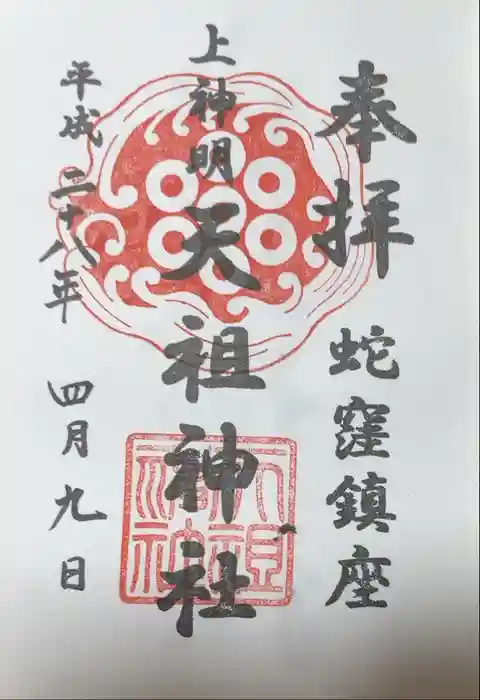 奉拝
蛇窪鎮座
上神明
天祖神社
平成二十八年
四月九日
天祖神社